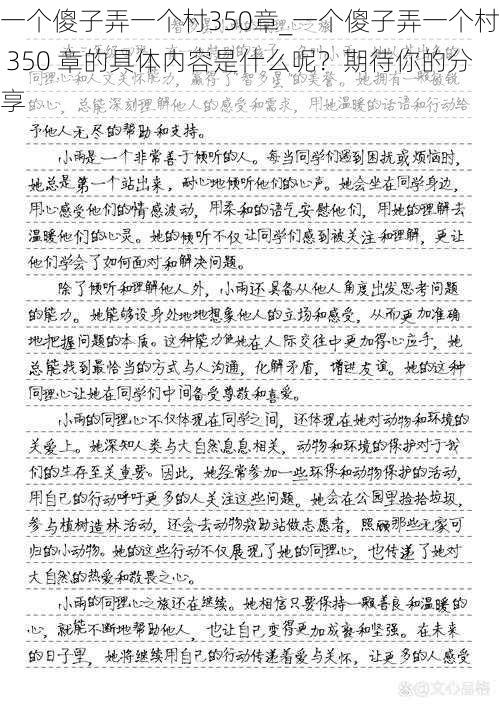 一个傻子弄一个村350章_一个傻子弄一个村
350 章的具体内容是什么呢？期待你的分
享
同理心和人文关怀能力，赢得了“智多星”的美誉。她拥有一颗敏锐
的心，总能深刻理解他人的感受和需求，用她温暖的话语和行动给
予他人无尽的帮助和支持。
小雨是一个非常善于倾听的人。每当同学们遇到困扰或烦恼时，
她总是第一个站出来，耐心地倾听他们的心声。她会坐在同学身边，
用心感受他们的情感波动，用柔和的语气安慰他们，用她的理解去
温暖他们的心灵。她的倾听不仅让同学们感到被关注和理解，更让
他们学会了如何面对和解决问题。
除了倾听和理解他人外，小雨还具备从他人角度出发思考问题
的能力。她能够设身处地地想象他人的立场和感受，从而更加准确
地把握问题的本质。这种能力使她在人际交往中更加得心应手，她
总能找到最恰当的方式与人沟通，化解矛盾，增进友谊。她的这种
同理心让她在同学们中间备受尊敬和喜爱。
小雨的同理心不仅体现在同学之间，还体现在她对动物和环境的
关爱上。她深知人类与大自然息息相关，动物和环境的保护对于我
们的生存至关重要。因此，她经常参加一些环保和动物保护的活动，
用自己的行动呼吁更多的人关注这些问题。她会在公园里捡拾垃圾，
参与植树造林活动，还会去动物救助站做志愿者，照顾那些无家可
归的小动物。她的这些行动不仅展现了她的同理心，也传递了她对
大自然的热爱和敬畏之心。
小雨的同理心之旅还在继续。她相信只要保持一颗善良和温暖的
心，就能不断地帮助他人，也让自己变得更加成熟和坚强。在未来
的日子里，她将继续用自己的行动传递着爱与关怀，让更多的人感受
@文心品格